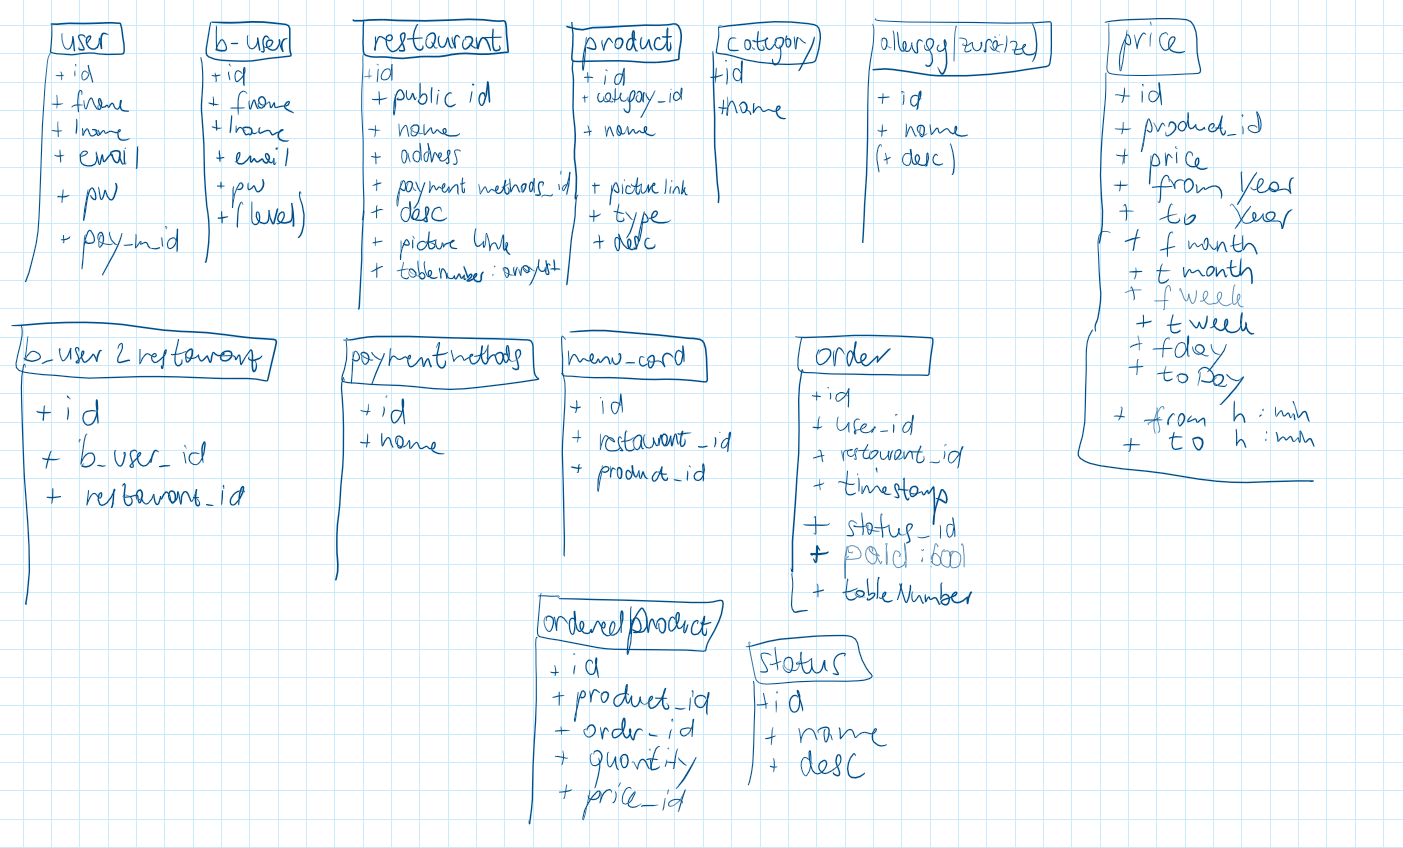 user
+ id
+ fname
+ lname
+ email
+ pw
+ pay_m_id
b-user
+ id
+ fname
+ lname
+ email
+ pw
+ (level)
restaurant
+id
+ public id
+ name
+ address
+ payment methods_id
+ desc
+ picture link
+ tablenumber: arraylist
product
+ id
+ category_id
+ name
+ picture link
+ type
+ desc
category
+id
+name
allergy (zusätze)
+ id
+ name
(+ desc)
price
+ id
+ product_id
+ price
+ from Year
+ to Year
+ f month
+ t month
+ f week
+ t week
+ f day
+ to Day
+ from h : min
+ to h : min
b_user 2 restaurant
+ id
+ b_user_id
+ restaurant_id
paymentmethods
+ id
+ name
menu_card
+ id
+ restaurant_id
+ product_id
order
+ id
+ user_id
+ restaurant_id
+ timestamp
+ status_id
+ paid : bool
+ tableNumber
ordered product
+ id
+ product_id
+ order_id
+ quantity
+ price_id
status
+ id
+ name
+ desc